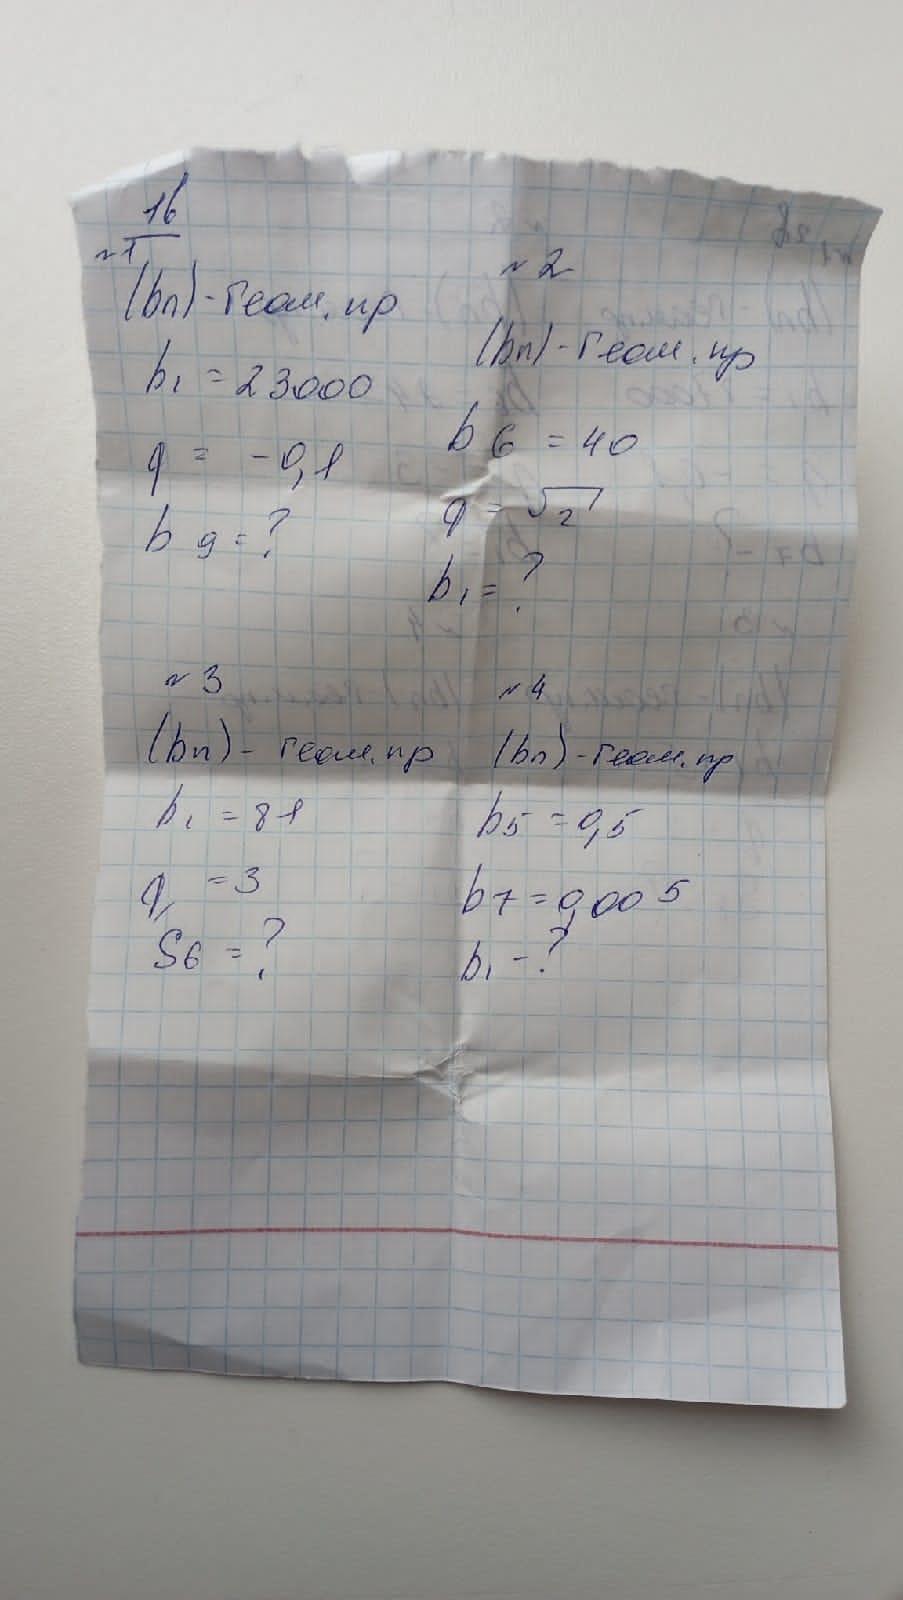 1б
№1
(bn) - геом. пр
b1 = 23000
q = -0,1
b9 = ?
№2
(bn) - геом. пр
b6 = 40
q = √2
b1 = ?
№3
(bn) - геом. пр
b1 = 81
q = 3
S6 = ?
№4
(bn) - геом. пр
b5 = 0,5
b7 = 0,005
b1 - ?